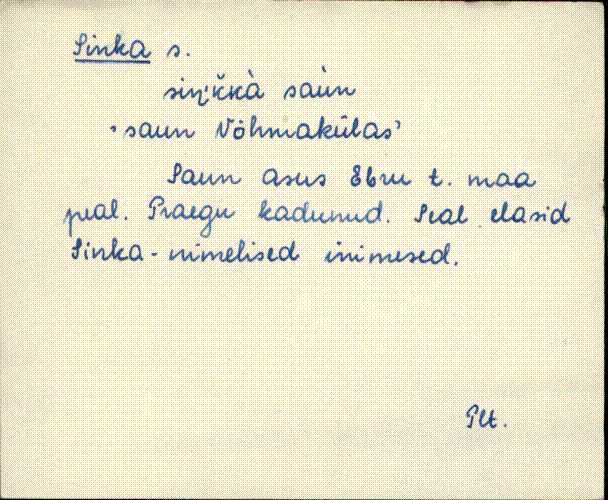 Sinka s.
siŋ̀ k̆kà saùn
'saun Võhmakülas'
Saun asus Ebru t. maa
peal. Praegu kadunud. Seal elasid
Sinka-nimelised inimesed.
Plt.